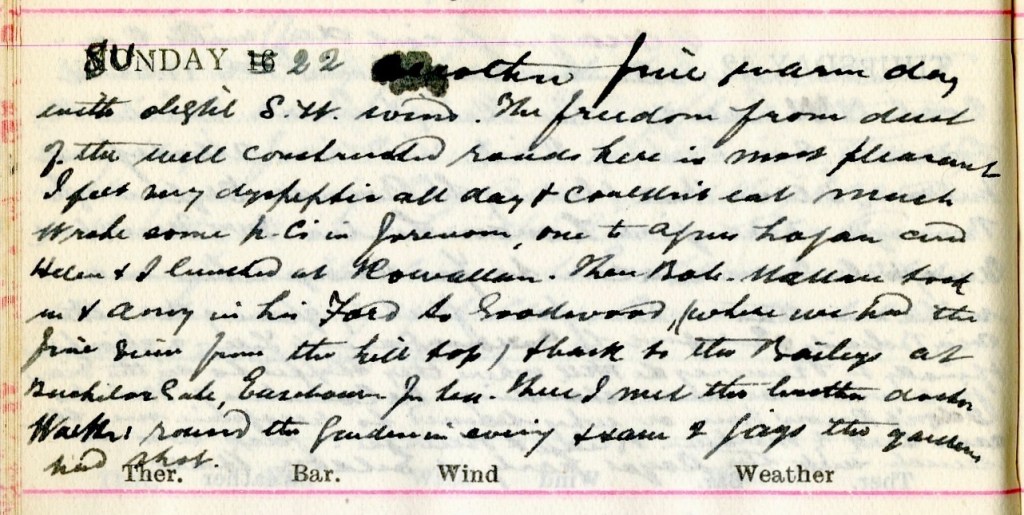 SUNDAY 16 22 Another fine warm day
with slight S.W. wind. The freedom from dust
of the well constructed roads here is most pleasant
I felt very dyspeptic all day & couldn't eat much
Wrote some p.cs in forenoon, one to Agnes Logan and
Helen & I lunched at Rowallan. Then Bob took
us & Amy in his Ford to Goodwood, (where we had the
fine view from the hill top) & back to the Baileys at
Gate, Easebourne for tea. There I met the brother doctor
Walked round the garden in evening & saw 2 jays the gardener
had shot.
Ther. Bar. Wind Weather